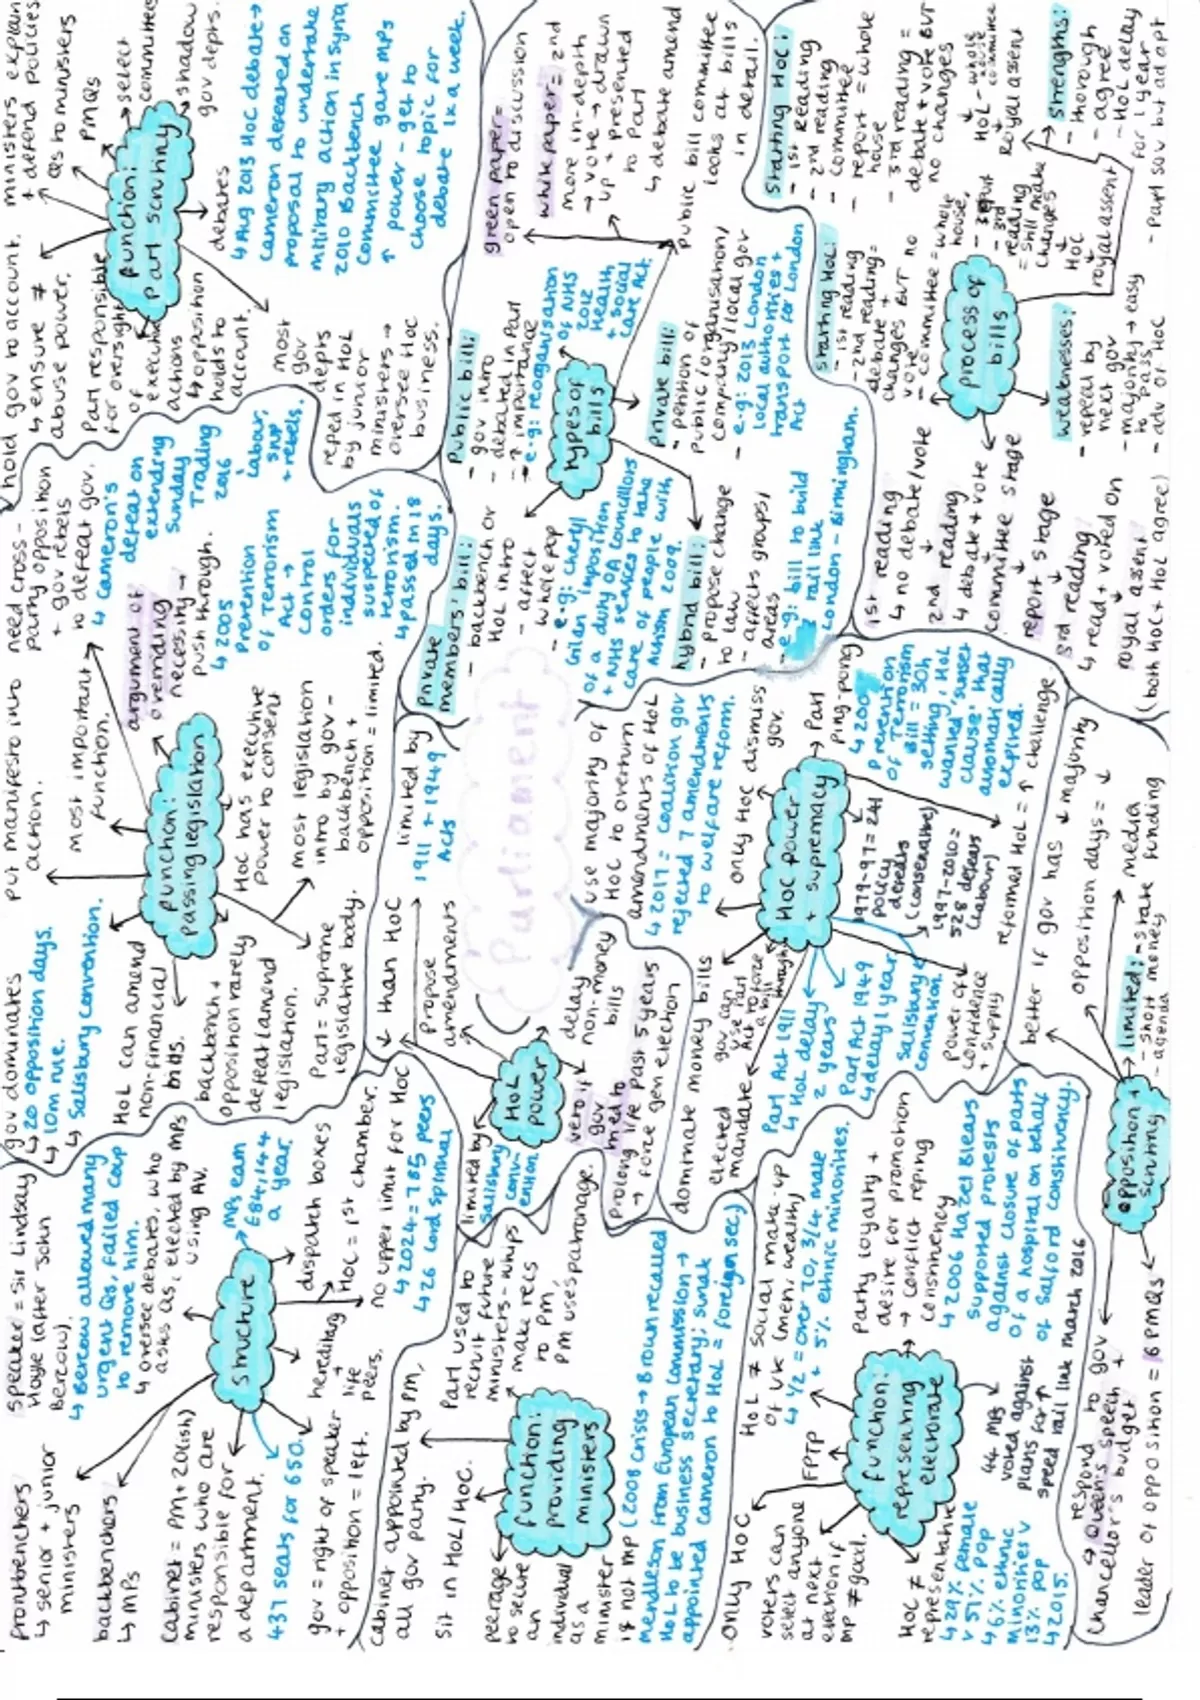 frontbenchers
↳ senior + junior
ministers
backbenchers
↳ MPs
Cabinet = PM + 20(ish)
ministers who are
responsible for
a department.
↳ 437 seats for 650.
gov = right of speaker
+ opposition = left.
Speaker = Sir Lindsay
Hoyle (after John
Bercow).
↳ Bercow allowed many
urgent Qs, failed coup
to remove him.
↳ oversee debates, who
asks Qs, elected by MPs
using AV.
structure
MPs earn
£84,144
a year.
dispatch boxes
HoC = 1st chamber.
hereditary
+
life
peers.
no upper limit for HoC
↳ 2024 = 785 peers
↳ 26 Lord spiritual
gov dominates
↳ 20 opposition days.
↳ 10m rule.
↳ Salisbury convention.
HoL can amend
non-financial
bills.
backbench +
opposition rarely
defeat/amend
legislation.
Part = supreme
legislative body.
function:
passing legislation
put manifesto into
action.
most important
function.
HoC has executive
power to consent
most legislation
intro by gov -
backbench +
opposition = limited.
argument of
overriding
necessity →
push through.
↳ 2005
Prevention
of Terrorism
Act →
control
orders for
individuals
suspected of
terrorism.
↳ passed in 18
days.
need cross-
party opposition
+ gov rebels
to defeat gov.
↳ Cameron's
defeat on
extending
Sunday
Trading
2016
Labour,
SNP,
+ rebels.
hold gov to account.
↳ ensure ≠
abuse power.
Parl responsible
for oversight
of
executive
actions
↳ opposition
holds to
account.
most
gov
depts
reped in HoL
by junior
ministers →
oversee HoC
business.
function:
parl scrutiny
ministers explain
+ defend policies
Qs to ministers
PMQs
select
committees
shadow
gov depts.
debates
↳ Aug 2013 HoC debate →
Cameron defeated on
proposal to undertake
military action in Syria
2010 Backbench
committee gave MPs
↑ power - get to
choose topic for
debate 1x a week.
Cabinet appointed by PM,
all gov party.
sit in HoL/HoC.
peerage
to secure
an
individual
as a
minister
if not MP (2008 crisis → Brown recalled
Mendleson from European Commission →
HoL to be business secretary; Sunak
appointed Cameron to HoL = foreign sec)
function:
providing
ministers
Part used to
recruit future
ministers - whips
make recs
to PM,
PM uses patronage.
HoL
power
limited by
Salisbury
conv-
ention
↓ than HoC
propose
amendments
limited by
1911 + 1949
Acts
delay
non-money
bills
veto if
gov
tried to
prolong life past 5 years
→ force gen election
Parliament
private
members' bill:
- backbench or
HoL intro
- affect
whole pop
- e.g: Cheryl
Gillan imposition
of a duty of LA councillors
+ NHS services to take
care of people with
Autism 2009.
Public bill:
- gov intro
- debated in Parl
- ↑ importance
- e.g: reorganisation
of NHS
2012
Health
+ Social
Care Act.
types of
bills
hybrid bill:
- propose change
to law
- affects groups/
areas
- e.g: bill to build
rail link
London - Birmingham.
private bill:
- petition of
public/organisation/
company/local gov
- e.g: 2013 London
local authorities +
transport for London
Act
green paper =
open to discussion
white paper = 2nd
more in-depth
→ vote → drawn
up + presented
to Parl
↳ debate amend
public bill committee
looks at bills
in detail.
Only HoC
dominate money bills
elected
mandate
gov can
use Parl
Act to force
a bill
through
use majority of
HoC to overturn
amendments of HoL
↳ 2011 = coalition gov
rejected 7 amendments
to welfare reform.
only HoC dismiss
gov.
HoC power
+ supremacy
Parl Act 1911
↳ HoL delay
2 years
Parl Act 1949
↳ delay 1 year
Salisbury
convention.
power of
confidence
+
supply
1979-97 = 241
policy
defeats
(conservative)
1997-2010 =
528 defeats
(Labour)
Parl
ping-pong
↳ 2005
Prevention
of Terrorism
Bill = 30h
setting, HoL
wanted 'sunset
clause' that
automatically
expired.
reformed HoL = ↑ challenge
voters can
select anyone
at next
election if
MP ≠ good.
FPTP
HoL ≠ social make-up
of UK (men, wealth)
↳ ½ = over 70, 3/4 male
+ 5% ethnic minorities.
function:
representing
electorate
HoC ≠
representative
↳ 29% female
v 51% pop
↳ 6% ethnic
minorities v
13% pop
↳ 2015.
44 MPs
voted against
plans for ↑
speed rail link March 2016
Party loyalty +
desire for promotion
→ conflict reping
constituency
↳ 2006 Hazel Blears
supported protests
against closure of parts
of a hospital on behalf
of Salford constituency.
opposition +
scrutiny
↳ respond to gov
Queen's speech +
Chancellor's budget
leader of opposition = 6 PMQs
limited: - state funding
- short money
- agenda
media
opposition days = ↓
better if gov has ↓ majority
1st reading
↳ no debate/vote
↓
2nd reading
↳ debate + vote
↓
committee stage
↓
report stage
↓
3rd reading
↳ read + voted on
↓
royal assent
(both HoC + HoL agree)
process of
bills
starting HoL:
- 1st reading
- 2nd reading =
debate +
changes BUT no
vote
- committee = whole
house,
- report
- 3rd
reading
= still make
changes
↓
HoC
↓
royal assent
starting HoC:
- 1st reading
- 2nd reading
- committee
- report = whole
house
- 3rd reading =
debate + vote BUT
no changes
↓
HoL - whole
committee
↓
Royal assent
weaknesses:
- repeal by
next gov
- majority → easy
to pass
- adv of HoC
strengths:
- thorough
- agree
- HoL delay
for 1 year
- Parl sov but adapt